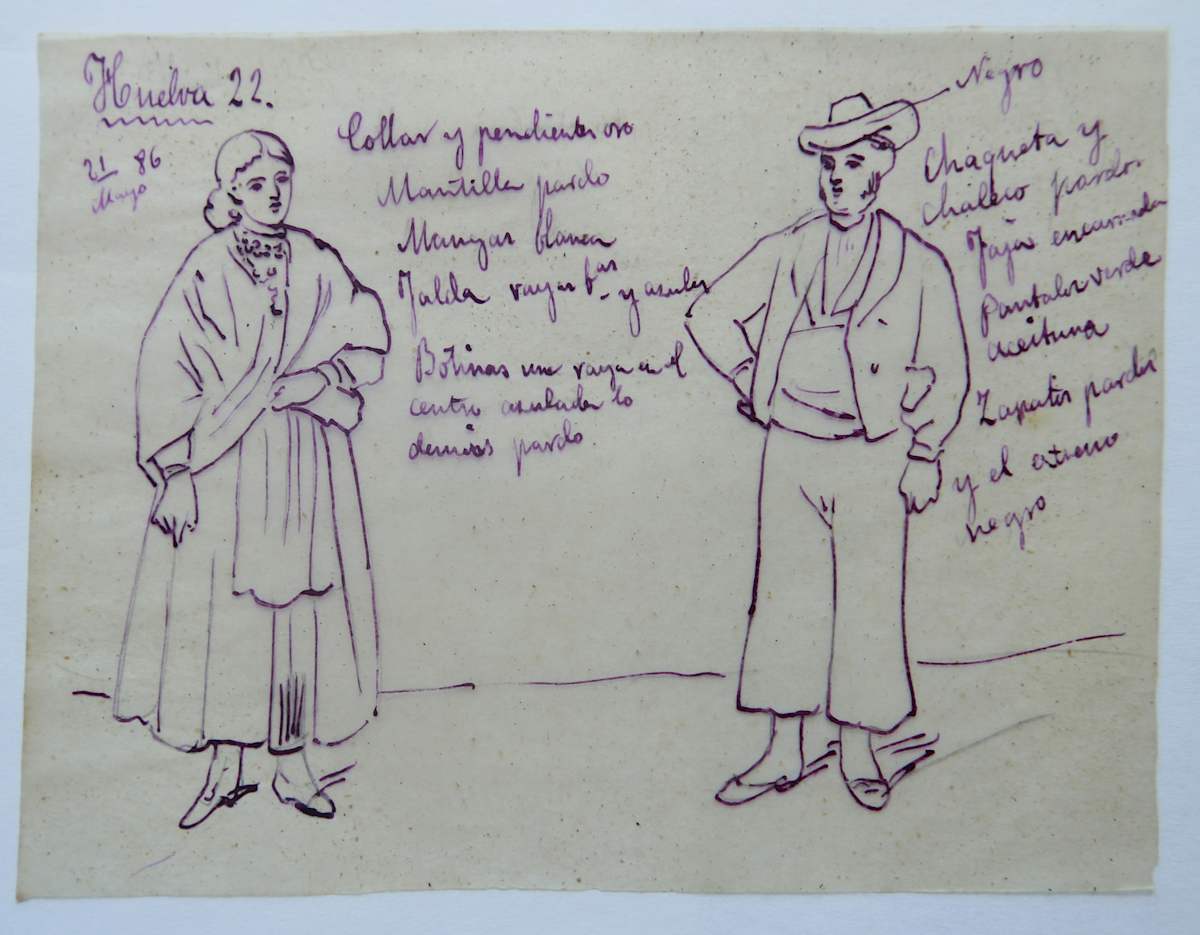 Huelva 22.
21 86
Mayo
Collar y pendientes oro
Mantilla pardo
Mangas blanca
Falda rayas bas y azules
Botinas una raya en el
centro azulada lo
demás pardo
Negro
Chaqueta y
chaleco pardos
Faja encarnada
Pantalon verde
aceituna
Zapatos pardos
y el extremo
negro